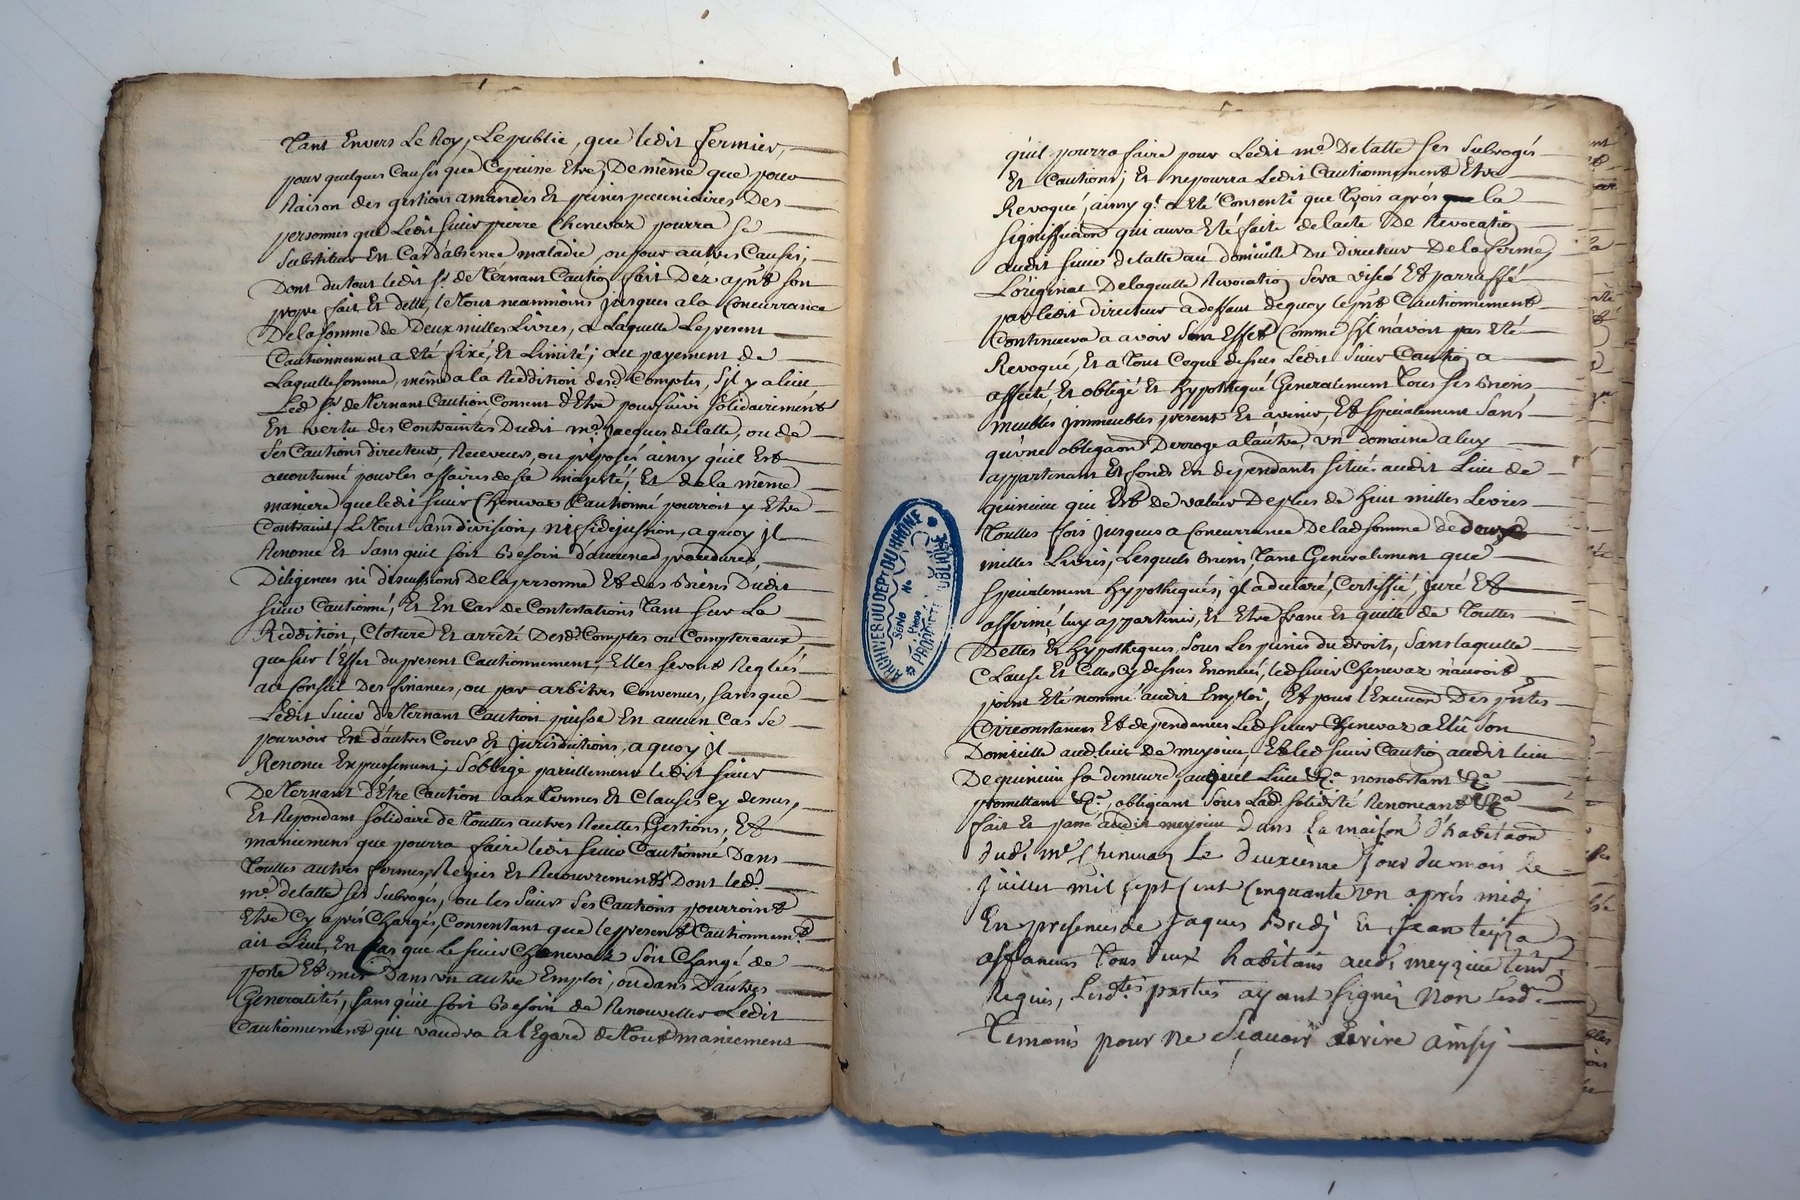 Tant Envers Le Roy, Lepublic, que ledit fermier,
pour quelques Causes que Cepuisse Etre; De même que pour
Raison des gestions amandes Et peines pecuniaires Des
personnes que Ledit sieur pierre Chenevaz pourra se
substituer En Cas d'absence maladie, ou pour autres Causes,
Dont du tout ledit sr. de Ternant Caution fait Déz apñt son
propre fait Et dette, le Tout neanmoins jusques a la Concurrance
De la somme de Deux milles Livres, a Laquelle Le present
Cautionnement a Eté fixé, Et Limité; au payement de
Laquelle somme, même a la Reddition desd. Comptes, s'il y a lieu
Led. sr. de Ternant Caution Consent d'Etre poursuivi solidairement
En vertu des Contraintes Dudit me. Jacques delatte, ou de
ses Cautions directeurs, Receveurs, ou préposés ainsy qu'il Est
accoutumé pour les affaires de sa majesté, Et de la même
maniere que ledit sieur Chenevaz Cautionné pourroit y Etre
Contraint, Le Tout sans division, ni fidejussion, a quoy il
Renonce Et sans quil soit Besoin d'aucunes procedures,
Diligences ni discussions De la personne Et des Biens Dudit
sieur Cautionné, Et En Cas de Contestations Tant sur La
Reddition, Cloture Et arrêté Desd. Comptes ou Comptereaux
que sur l'Effet du present Cautionnement, Elles seront Reglées
au Conseil Des finances, ou par arbitres Convenus, sans que
Ledit sieur de Ternant Caution puisse En aucun Cas se
pourvoir En d'autres Cours Et Jurisdictions, a quoy il
Renonce Expressement; s'oblige pareillement ledit sieur
De Ternant d'Etre Caution aux Termes Et Clauses Cy dessus,
Et Repondant solidaire de Touttes autres Recettes Gestions, Et
maniement que pourra faire ledit sieur Cautionné Dans
Touttes autres fermes, Regies Et Recouvrements Dont led.
me. delatte ses subrogés, ou les sieurs ses Cautions pourroint
Etre Cy après Chargés, Consentant que le present Cautionnemt.
ait Lieu, En Cas que Le sieur Chenevaz soit Changé de
poste Et mis Dans un autre Emploi, ou dans D'autres
Generalités, sans qu'il soit Besoin de Renouveller Ledit
Cautionnement qui vaudra a l'Egard de Tout maniement
qu'il pourra faire pour Ledit me. Delatte ses subrogés
Et Cautions; Et ne pourra Ledit Cautionnement Etre
Revoqué, ainsy q'. a Eté Consenti que Trois après la
signiffication qui aura Eté faite de l'acte De Revocation
audit sieur delatte au domicille Du directeur De la ferme,
L'original De laquelle Revocation sera visée Et parraffé
par ledit directeur a deffaut de quoy le pñt Cautionnement
Continuera a avoir son Effet Comme s'il n'avoit pas Eté
Revoqué, Et a Tout Ceque dessus Ledit sieur Caution a
affecté, Et obligé Et hypothequé Generalement Tous ses Biens
meubles jmmeubles presents Et avenir, Et specialement sans
qu'une obligaõn Derroge a l'autre, un domaine a luy
appartenant Et fonds En dependants situé audit Lieu de
quincieu qui Est de valeur De plus de huit milles Livres
Touttes fois jusques a Concurrance De lad. somme de deux
milles Livres, Lesquels Biens, Tant Generalement que
specialement hypothequés, il a declaré, Certiffié, juré Et
affirmé luy appartenir, Et Etre franc Et quitte de Touttes
Dettes Et hypotheques, sous Les peines du droits, sans laquelle
Clause Et Celles Cy dessus Enoncées, led. sieur Chenevaz n'auroit
point Eté nommé audit Emploi; Et pour l'Execution Des pñtes
Circonstances Et dependances Led. sieur Chenevaz a Elû son
Domicille aud. lieu de meyzieu, Et led. sieur Caution audit lieu
De quincieu sa demeure, auquel Lieu &a. nonobstant &a.
promettant &a. obligeant sous Lad. solidité Renonceant &a
fait Et passé audit meyzieu Dans la maison d'habitaõn
dud. me. Chenevaz Le deuxieme Jour du mois de
juillet mil sept Cent Cinquante un après midj
En presences de Jaques Bredj Et Jean
affaneurs Tous deux habitans aud. meyzieu
Requis, Lesd. parties ayant signé, Non Lesd.
Temoins pour ne sçavoir Ecrire ainsj
ARCHIVES DU DEPt DU RHÔNE
PROPRIÉTÉ PUBLIQUE
Série
No
Pièce